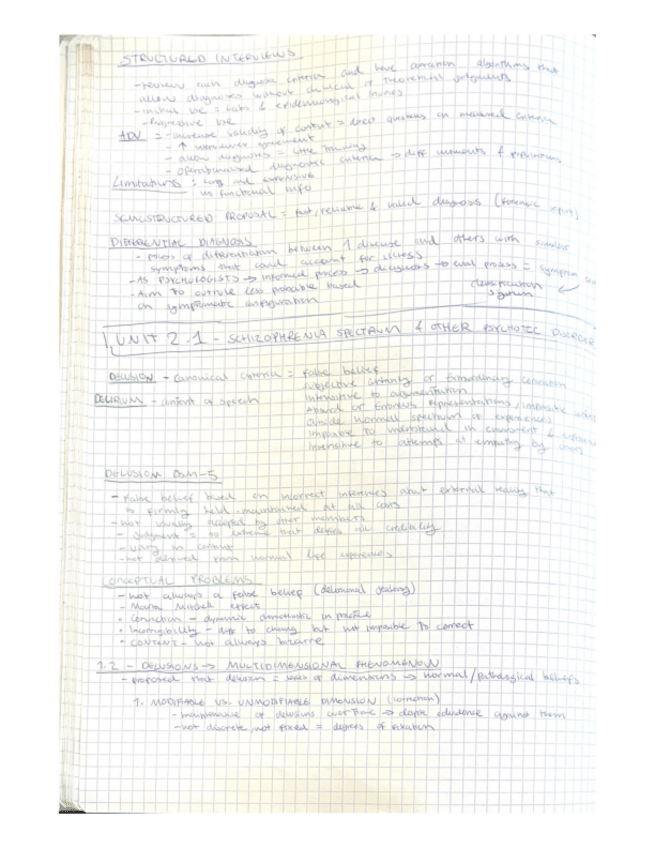 STRUCTURED INTERVIEWS
- review each diagnose criteria and have operation algorithms that
allow diagnoses without clinical or theoretical judgments
- initial use = labs & epidemiological studies
- Progressive use
ADV = - increase validity of content = direct questions on measured criteria
- ↑ interviewer agreement
- allow diagnosis = little training
- operationalized diagnostic criteria → diff moments & populations
Limitations : long and extensive
us functional info
SEMISTRUCTURED PROPOSAL = fast, reliable & valid diagnosis (forensic
DIFFERENTIAL DIAGNOSIS
- process of differentiation between 1 disease and others with similar
symptoms that could account for illness
- AS PSYCHOLOGISTS → informed process → diagnosis → eval process = symptom
- Aim TO outrule less probable based classification
on symptomatic configuration system
UNIT 2.1 - SCHIZOPHRENIA SPECTRUM & OTHER PSYCHOTIC DISORDER
DELUSION - canonical criteria = False belief
Subjective certainty or Extraordinary conviction
DELIRIUM - content of speech Insensitive to argumentation
Absurd or Erroneous Representations / impossible
Outside normal spectrum of experiences
Impossible to understand in concurrent &
Insensitive to attempts at empathy by
DELUSION DSM-5
- False belief based on incorrect inferences about external reality that
is firmly held maintained at all costs
- not usually accepted by other members
- Judgment = so extreme that defies all credibility
- vary in content
- not derived from normal life experiences
CONCEPTUAL PROBLEMS
- not always a false belief (delusional jealousy)
- Martha Mitchell effect
• Conviction - dynamic characteristic in practice
• Incorrigibility - diff to change but not impossible to correct
• CONTENT - not always bizarre
1.2 - DELUSIONS → MULTIDIMENSIONAL PHENOMENON
- proposed that delusion = series of dimensions → normal/pathological beliefs
1. MODIFIABLE VS. UNMODIFIABLE DIMENSION (conviction)
- maintenance of delusions over time → despite evidence against them
- not discrete, not fixed = degrees of fixation